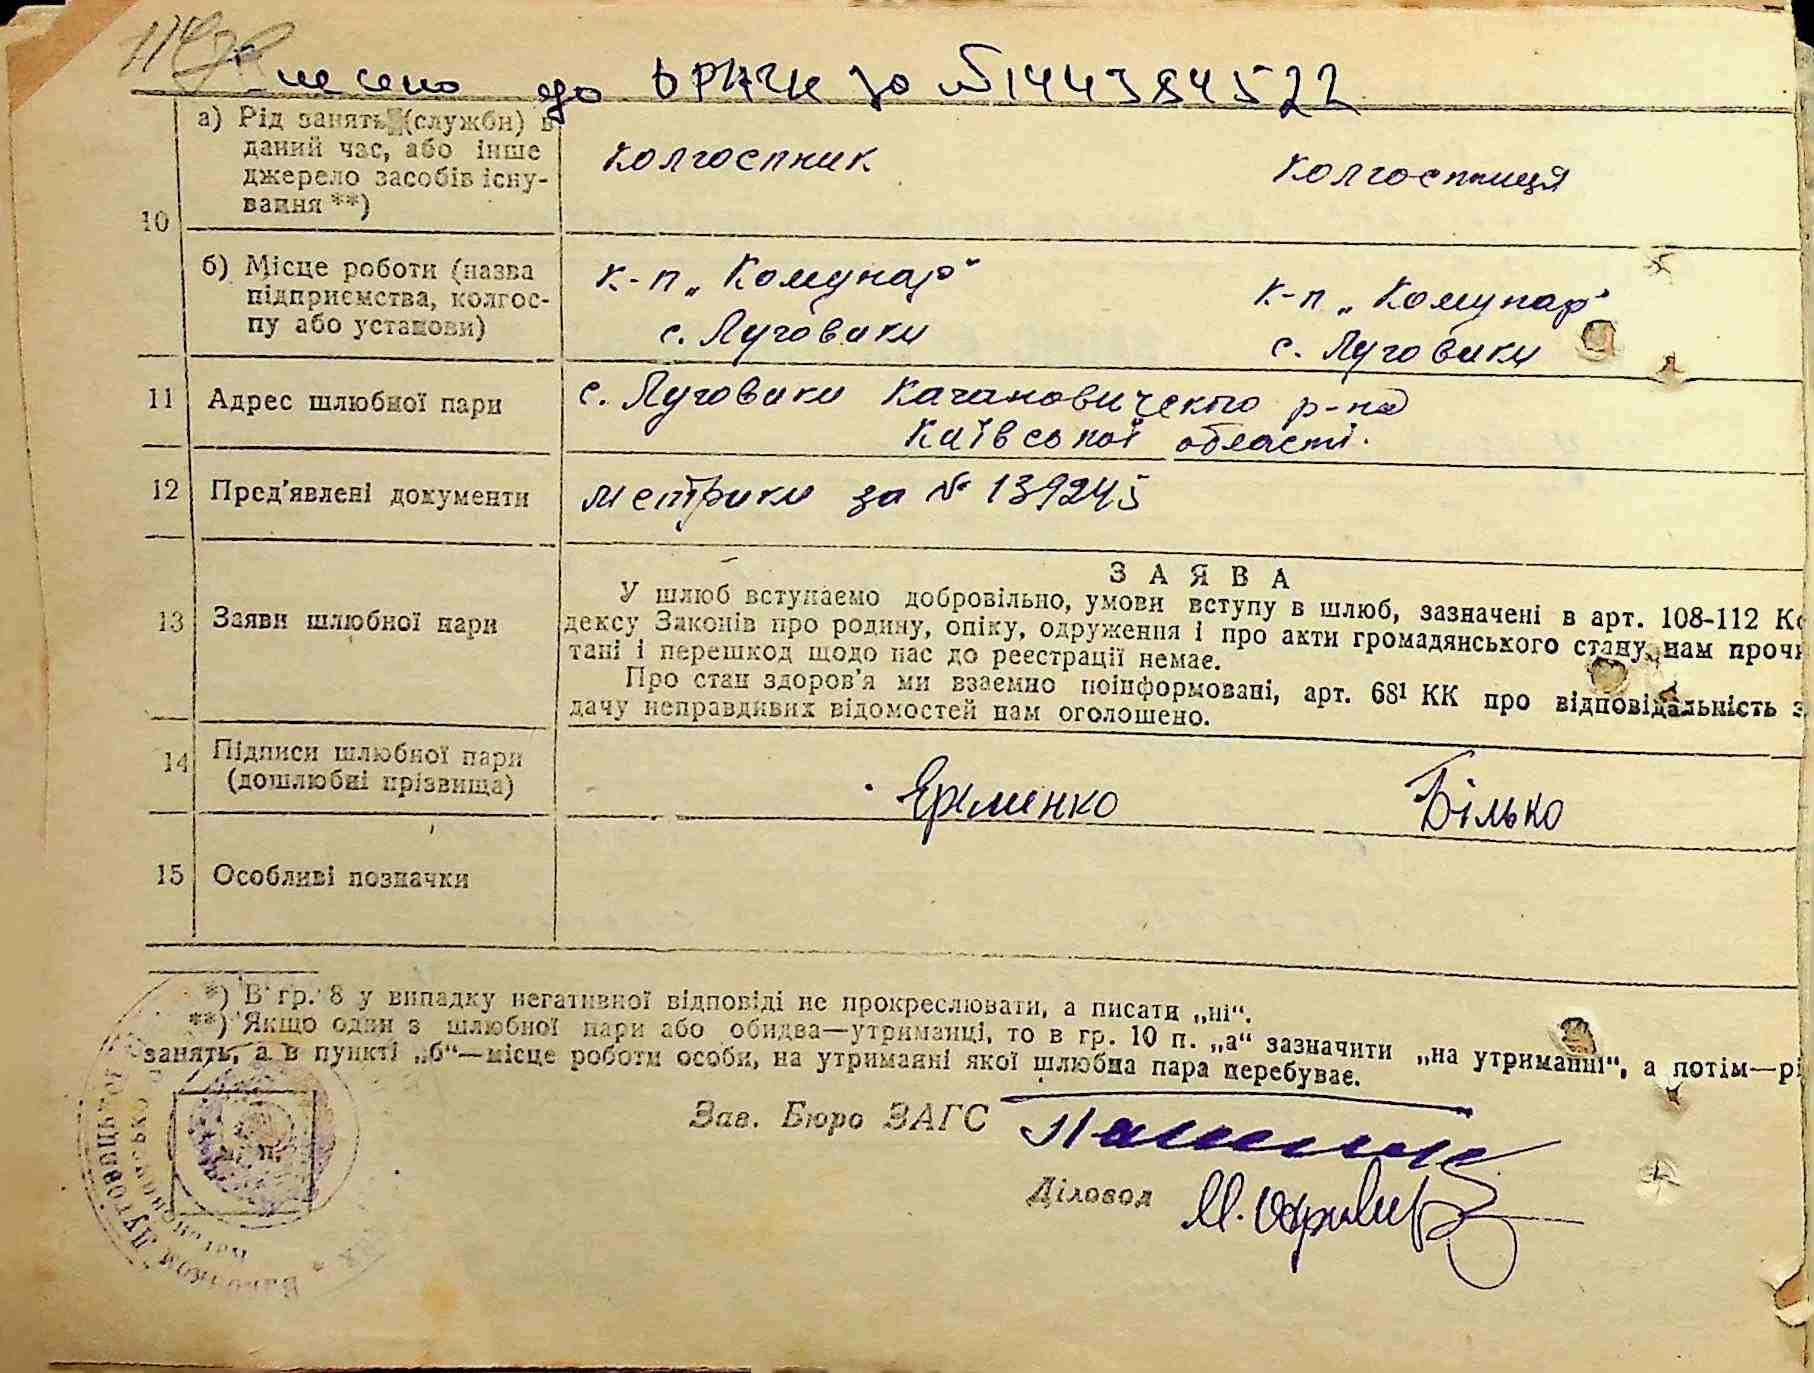 внесено до ДРАЦС за №144384522
а) Рід занять (служби) в
даний час, або інше
джерело засобів існу-
вання **)
колгоспник
колгоспниця
10
б) Місце роботи (назва
підприємства, колгос-
пу або установи)
к-п „Комунар“
с. Луговики
к-п „Комунар“
с. Луговики
11 Адрес шлюбної пари
с. Луговики Кагановичского р-на
Київської області.
12 Пред'явлені документи
метрики за № 139245
13 Заяви шлюбної пари
ЗАЯВА
У шлюб вступаємо добровільно, умови вступу в шлюб, зазначені в арт. 108-112 Ко
дексу Законів про родину, опіку, одруження і про акти громадянського стану, нам прочи
тані і перешкод щодо нас до реєстрації немає.
Про стан здоров'я ми взаємно поінформовані, арт. 68¹ КК про відповідальність з
дачу неправдивих відомостей нам оголошено.
14 Підписи шлюбної пари
(дошлюбні прізвища)
Єрьменко
Білько
15 Особливі позначки
*) В гр. 8 у випадку негативної відповіді не прокреслювати, а писати „ні“.
**) Якщо один з шлюбної пари або обидва—утриманці, то в гр. 10 п. „а“ зазначити „на утриманні“, а потім—рі
занять, а в пункті „б“—місце роботи особи, на утриманні якої шлюбна пара перебуває.
Зав. Бюро ЗАГС
Діловод